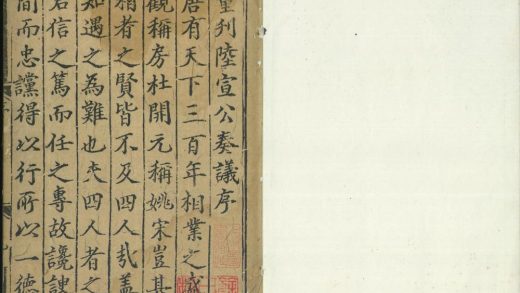 重刊陸宣公奏議序
唐有天下三百年相業之盛
觀稱房杜開元稱姚宋豈其
相者之賢皆不及四人㢤盖
知遇之為難也夫四人者之
君信之篤而任之專故讒諛
間而忠讜得以行所以一德